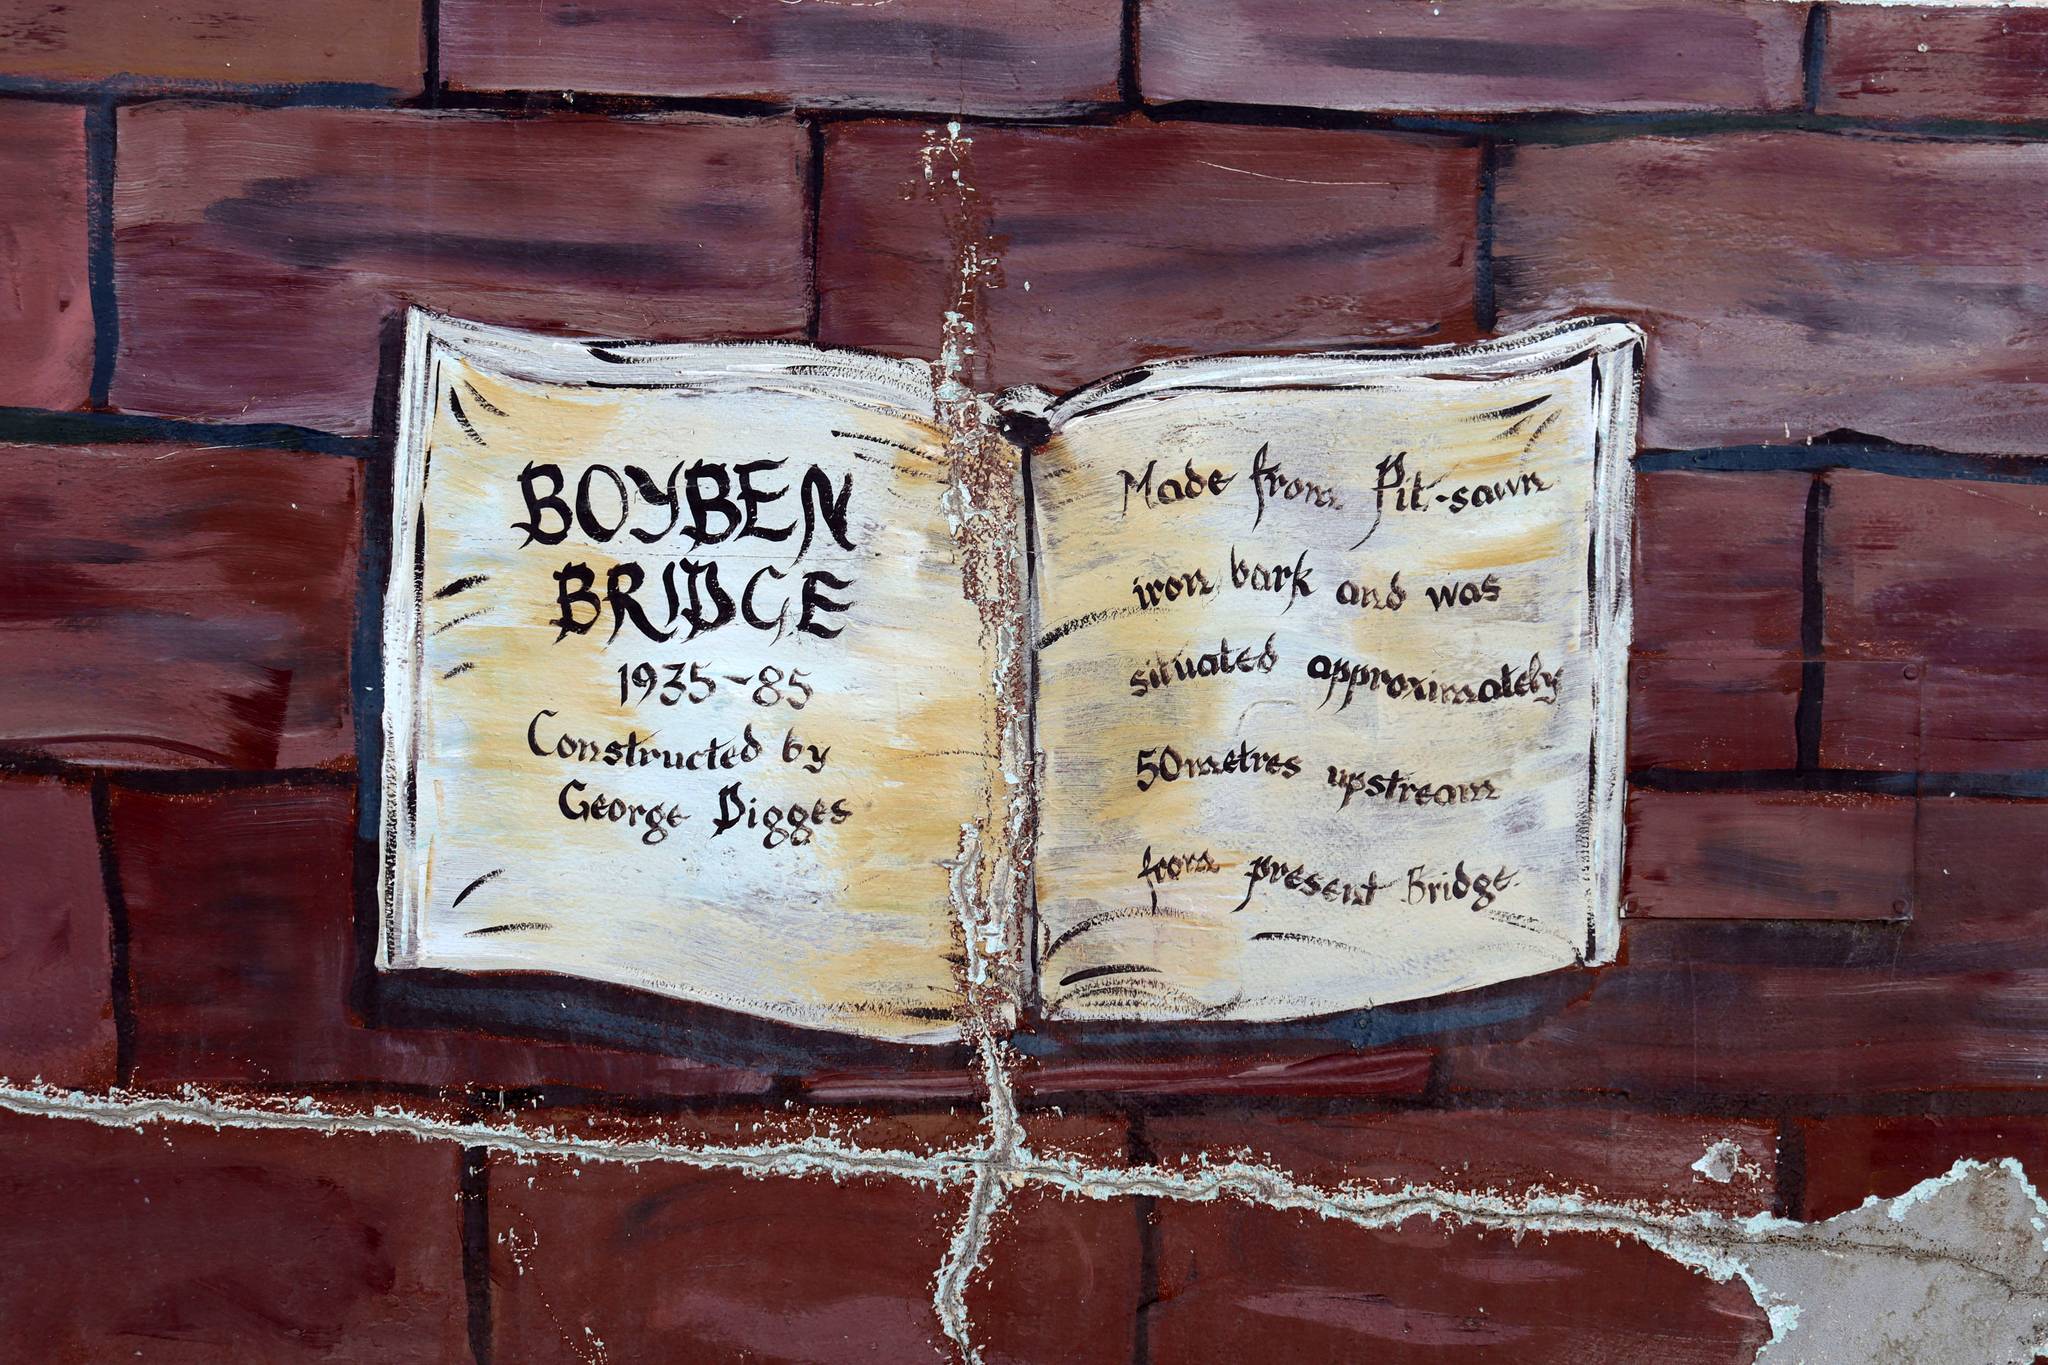 BOYBEN
BRIDGE
1935-85
Constructed by
George Digges
Made from Pit-sawn
iron bark and was
situated approximately
50metres upstream
from present Bridge.